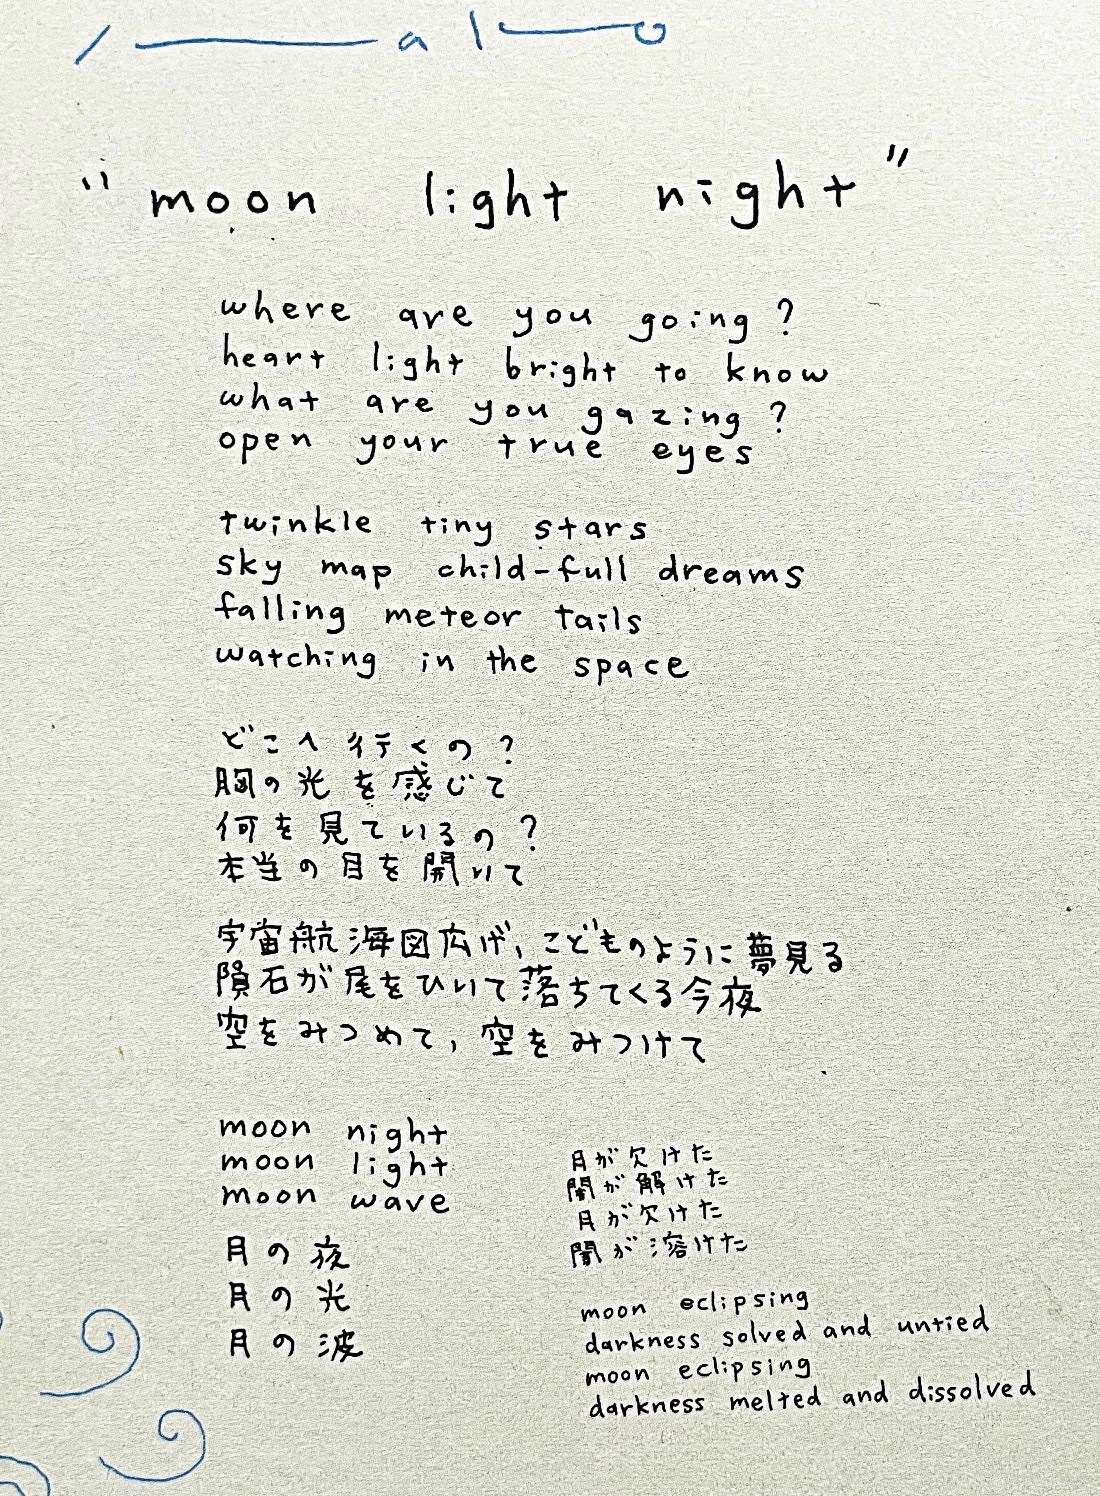 "moon light night"
where are you going?
heart light bright to know
what are you gazing?
open your true eyes
twinkle tiny stars
sky map child-full dreams
falling meteor tails
watching in the space
どこへ行くの?
胸の光を感じて
何を見ているの?
本当の目を開いて
宇宙航海図広げ、こどものように夢見る
隕石が尾をひいて落ちてくる今夜
空をみつめて、空をみつけて
moon night
moon light
moon wave
月の夜
月の光
月の波
月が欠けた
闇が解けた
月が欠けた
闇が溶けた
moon eclipsing
darkness solved and untied
moon eclipsing
darkness melted and dissolved